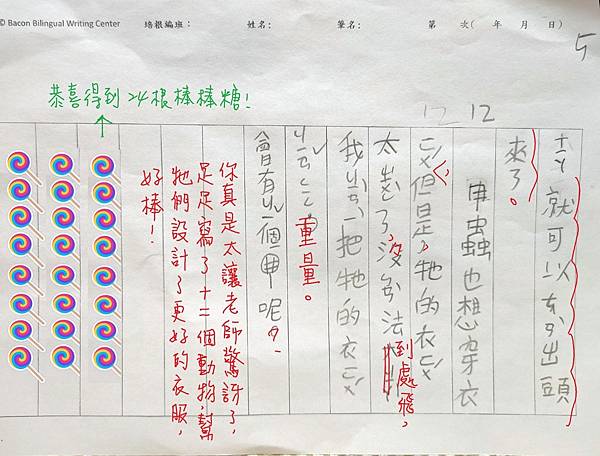 © Bacon Bilingual Writing Center 培根編班: 姓名: 筆名: 第 次( 年 月 日)
5
恭喜得到24根棒棒糖!
12 12
就可以出頭
來了。
甲蟲也想穿衣
ㄈㄨˊ但是,牠的衣ㄈㄨˊ
太了,沒法到處飛,
我一把牠的衣ㄈㄨˊ
重量。
會有個甲呢?
你真是太讓老師驚訝了,
足足寫了十二個動物,幫
牠們設計了更好的衣服,
好棒!